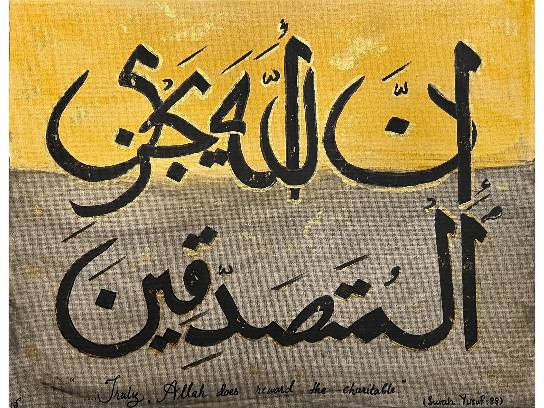 إِنَّ اللَّهَ يَجْزِي
الْمُتَصَدِّقِينَ
"...Truly, Allah does reward the charitable."
(Surah Yusuf:88)